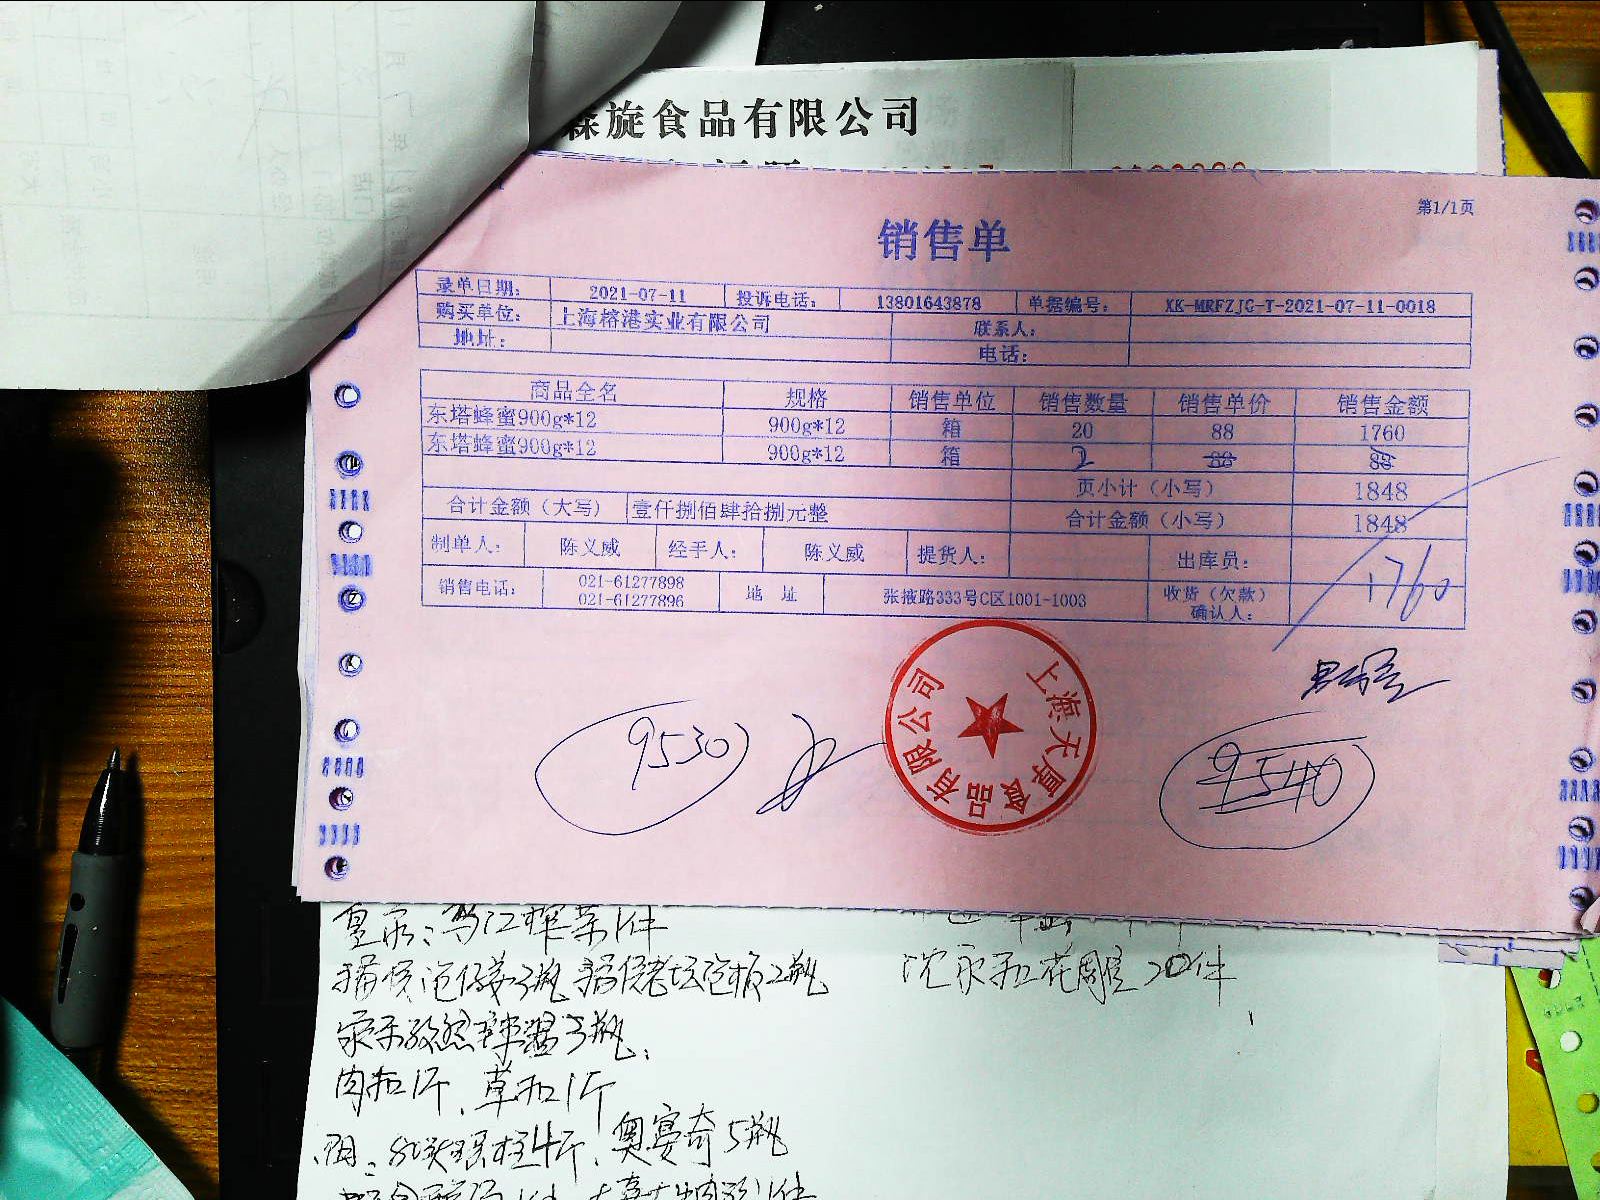 森旋食品有限公司
第1/1页
销售单
录单日期: 2021-07-11 投诉电话: 13801643878 单据编号: XK-MRFZJG-T-2021-07-11-0018
购买单位: 上海榕港实业有限公司 联系人:
地址: 电话:
商品全名 规格 销售单位 销售数量 销售单价 销售金额
东塔蜂蜜900g*12 900g*12 箱 20 88 1760
东塔蜂蜜900g*12 900g*12 箱 2 88 88
页小计（小写） 1848
合计金额（大写） 壹仟捌佰肆拾捌元整 合计金额（小写） 1848
制单人: 陈义威 经手人: 陈义威 提货人: 出库员:
1760
销售电话: 021-61277898 021-61277896 地 址 张掖路333号C区1001-1003 收货（欠款）确认人:
9530
上海天厚食品有限公司
9540
1件
3瓶 2瓶 沈永和花雕20件
辣酱3瓶
肉扣1斤、草扣1斤
4斤、奥赛奇5瓶